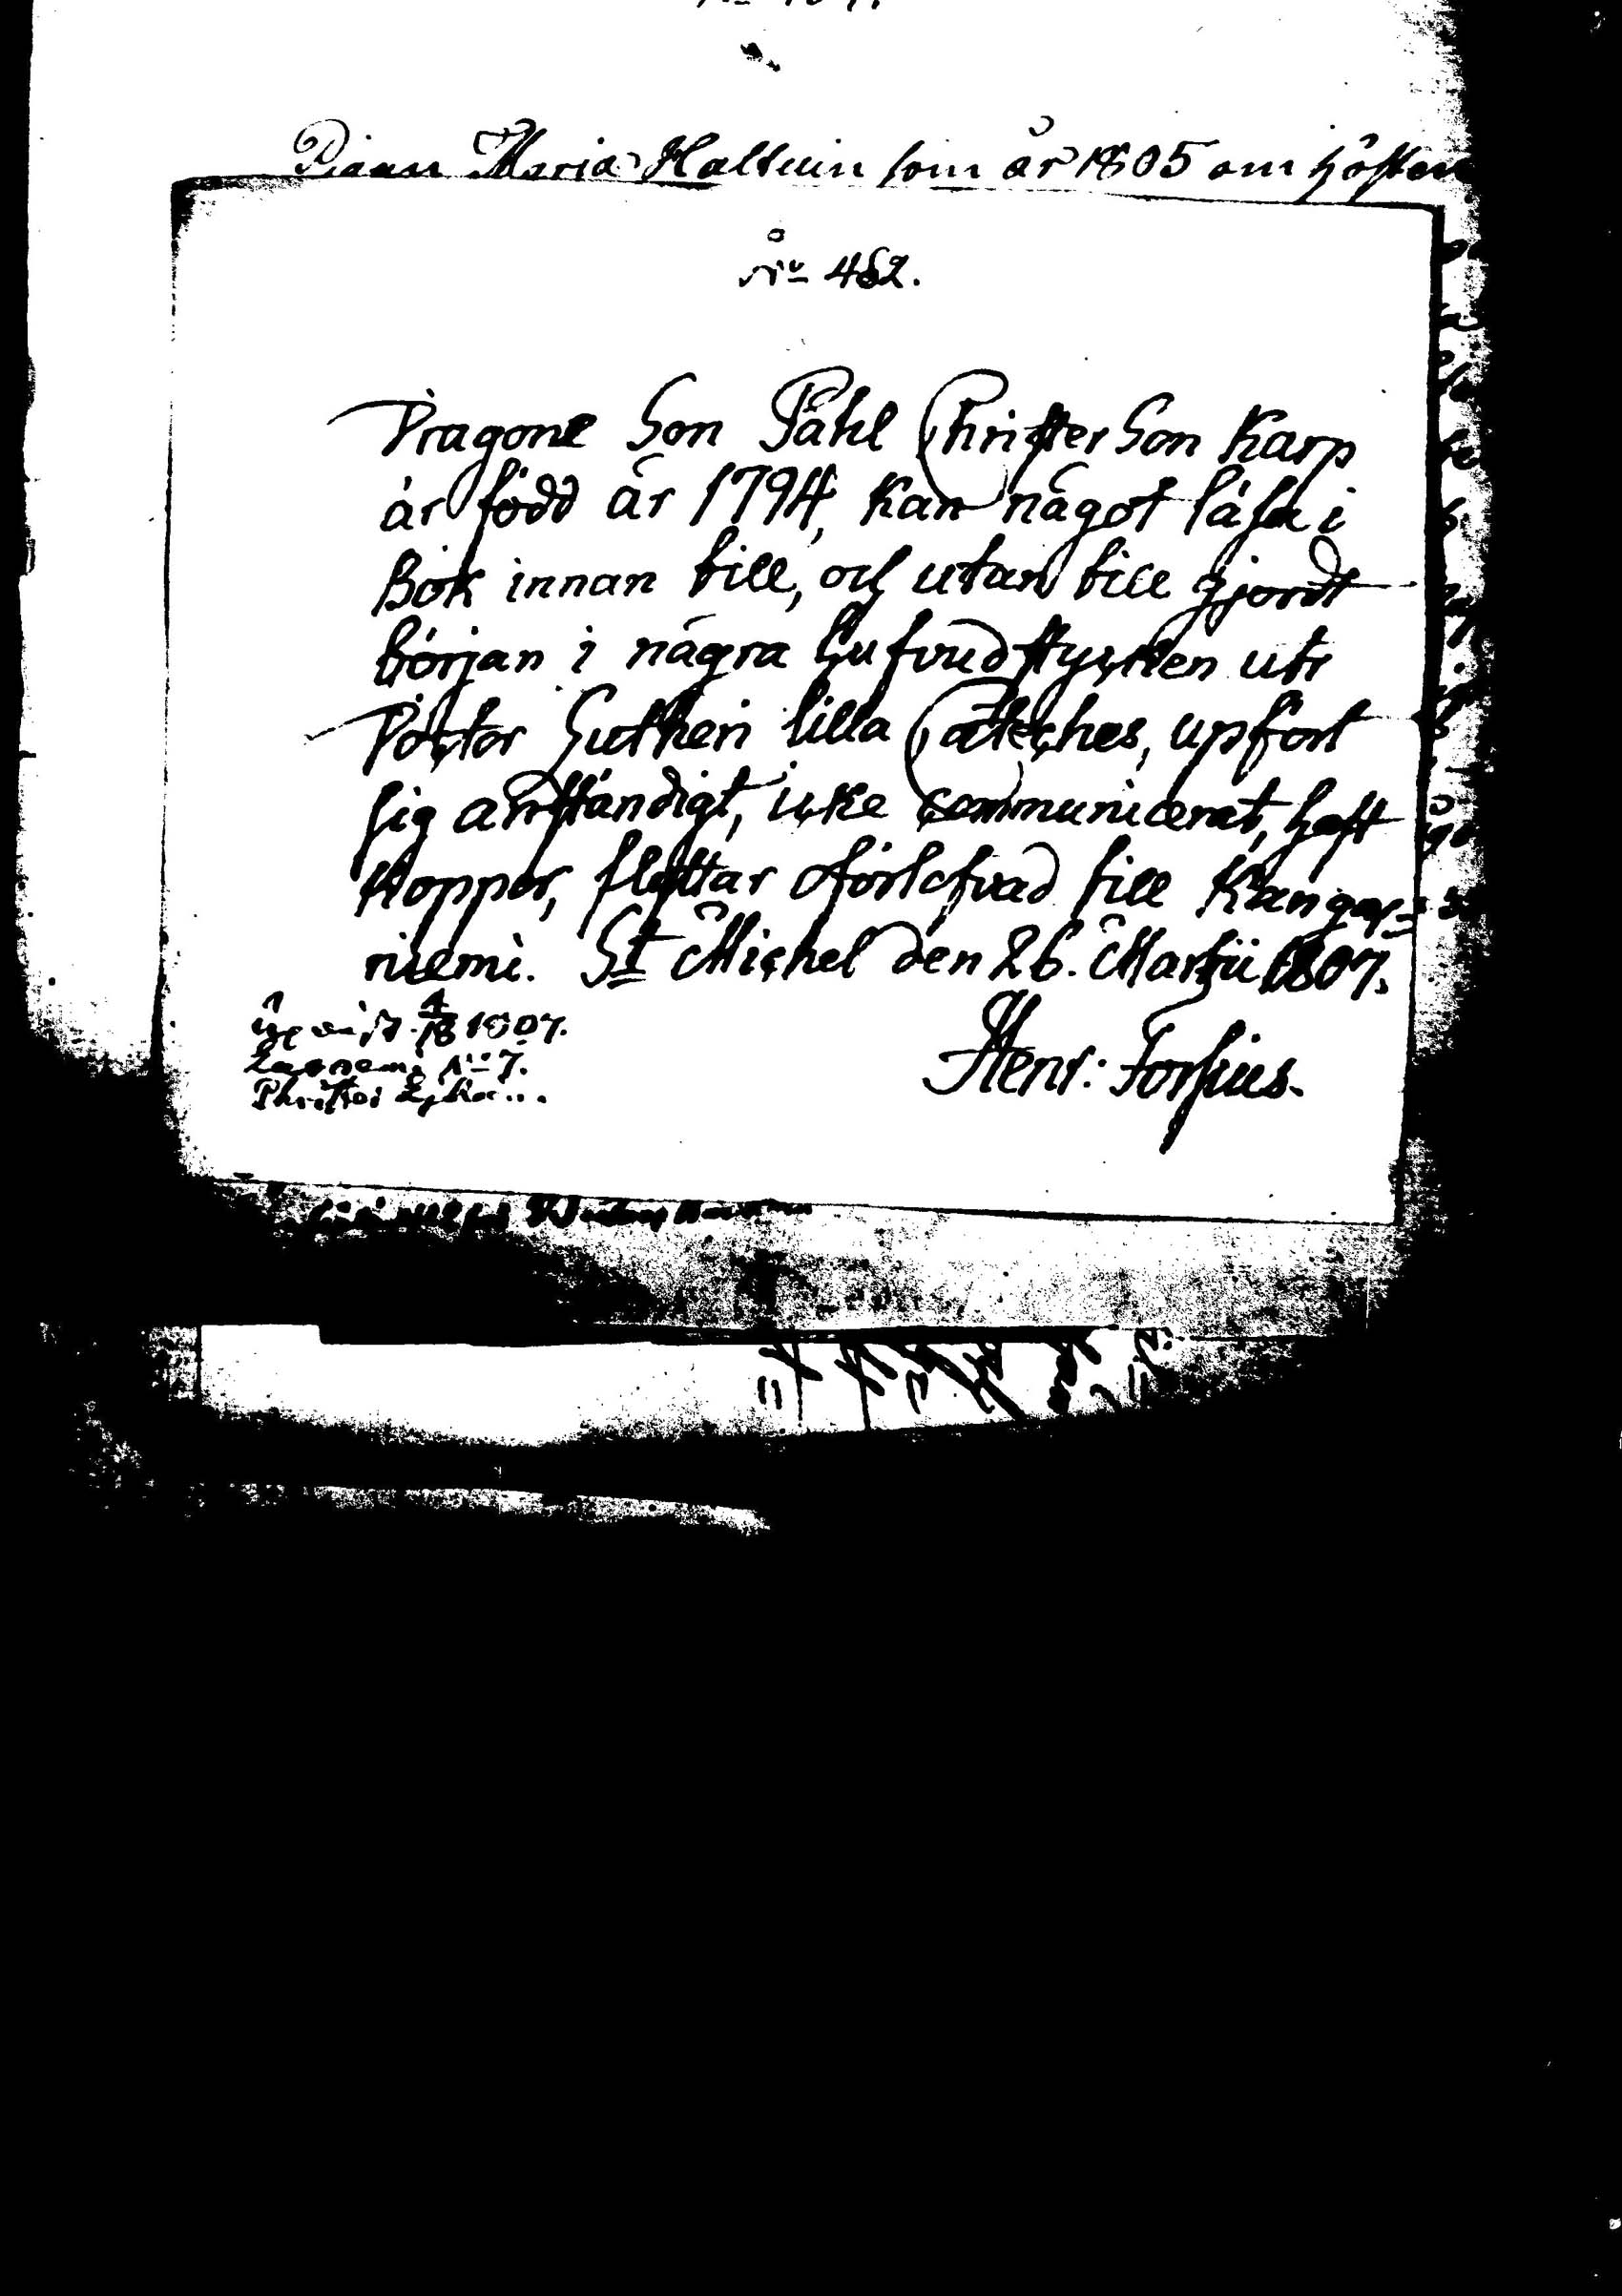 Maria Halttuin som år 1805 om hösten
No 482.
Dragone Son Påhl Christer Son Karp
är född år 1794, kan något läsa i
Bok innan till, och utan till gjordt
början i några hufvudstycken utr
Doctor Lutheri lilla Cateches, upfört
sig anständigt, icke communicerat, haft
Koppor, flyttar oförlofvad till Kangas=
niemi. St Michel den 26. Martii 1807.
1807.
No 7.
Henr: Forsius.